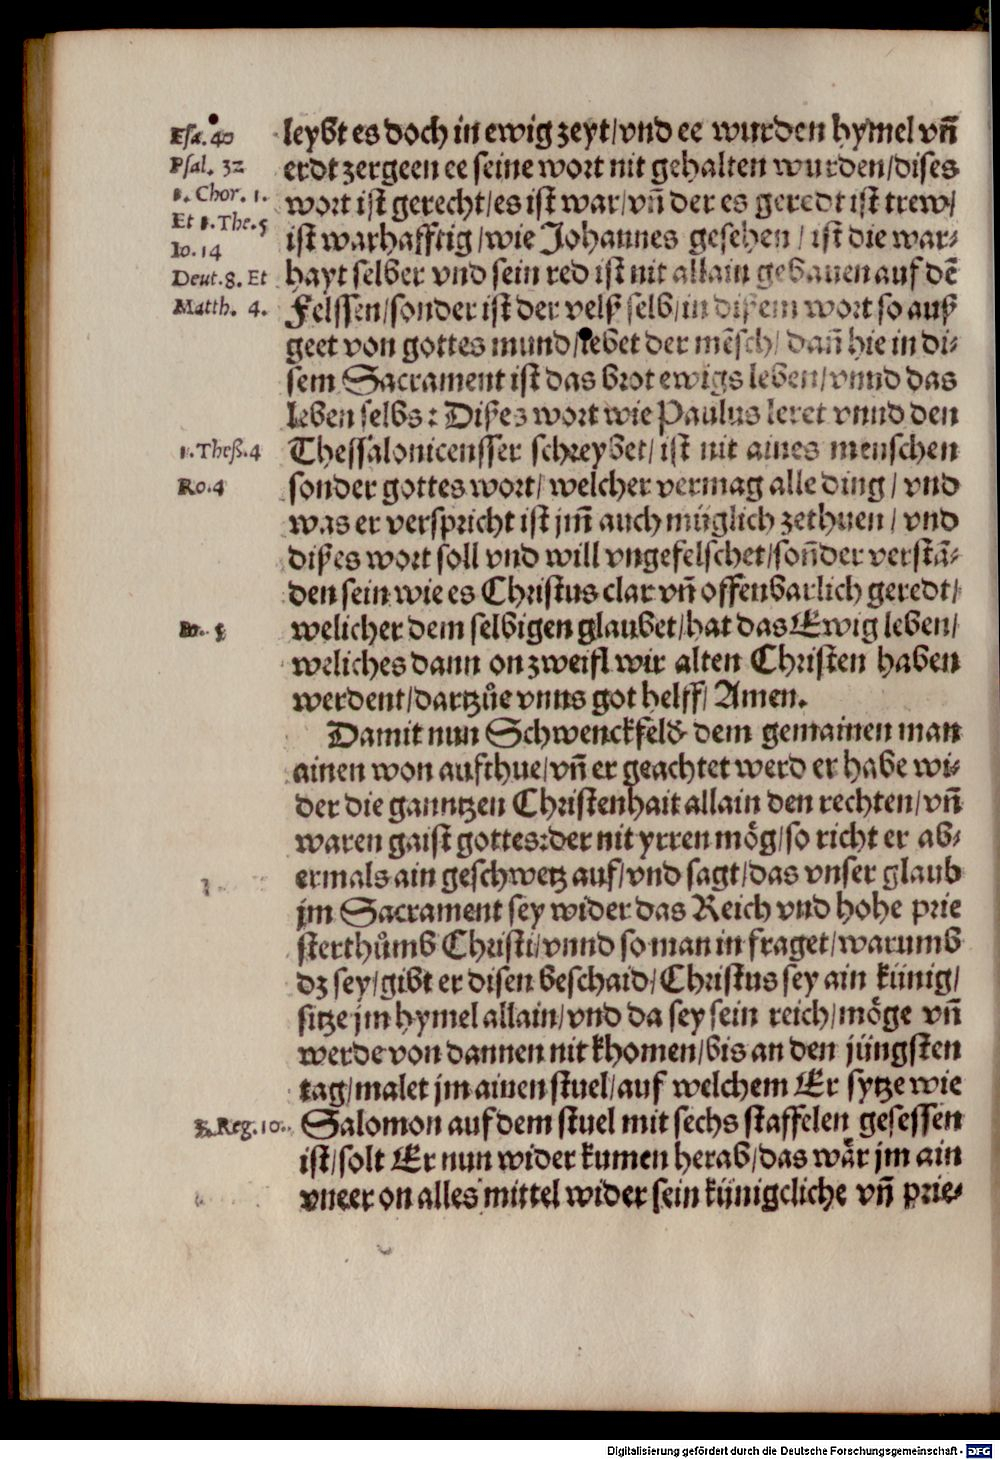 Esa. 40 leybt es doch in ewig zeyt/vnd ee wurden hymel vn̄
Psal. 32 erdt zergeen ee seine wort nit gehalten wurden/dises
1. Chor. 1. wort ist gerecht/es ist war/vn̄ der es geredt ist trew/
Et 1. The. 5 ist warhafftig/wie Johannes gesehen/ist die war⸗
Io. 14
Deut. 8. Et hayt selber vnd sein red ist nit allain gebauen auf dē
Matth. 4. Felssen/sonder ist der velß selb/in dißem wort so auß
geet von gottes mund/lebet der mēsch/dan̄ hie in di⸗
sem Sacrament ist das brot ewigs leben/vnnd das
leben selbs: Dißes wort wie Paulus leret vnnd den
1. Theß. 4 Thessalonicensser schreybet/ist nit aines menschen
Ro. 4 sonder gottes wort/welcher vermag alle ding/vnd
was er verspricht ist jm̄ auch müglich zethuen/vnd
dißes wort soll vnd will vngefelschet/son̄der verstā⸗
den sein wie es Christus clar vn̄ offenbarlich geredt/
welicher dem selbigen glaubet/hat das Ewig leben/
weliches dann on zweifl wir alten Christen haben
werdent/dartzůe vnns got helff/Amen.
Damit nun Schwenckfeld dem gemainen man
ainen won aufthue/vn̄ er geachtet werd er habe wi⸗
der die ganntzen Christenhait allain den rechten/vn̄
waren gaist gottes:der nit yrren mög/so richt er ab⸗
ermals ain geschwetz auf/vnd sagt/das vnser glaub
jm Sacrament sey wider das Reich vnd hohe prie
sterthůmb Christi/vnnd so man in fraget/warumb
dz sey/gibt er disen beschaid/Christus sey ain künig/
sitze jm hymel allain/vnd da sey sein reich/möge vn̄
werde von dannen nit khomen/bis an den jüngsten
tag/malet jm ainen stuel/auf welchem Er sytze wie
3. Reg. 10. Salomon auf dem stuel mit sechs staffelen gesessen
ist/solt Er nun wider kumen herab/das wär jm ain
vneer on alles mittel wider sein künigcliche vn̄ prie⸗
Digitalisierung gefördert durch die Deutsche Forschungsgemeinschaft - DFG